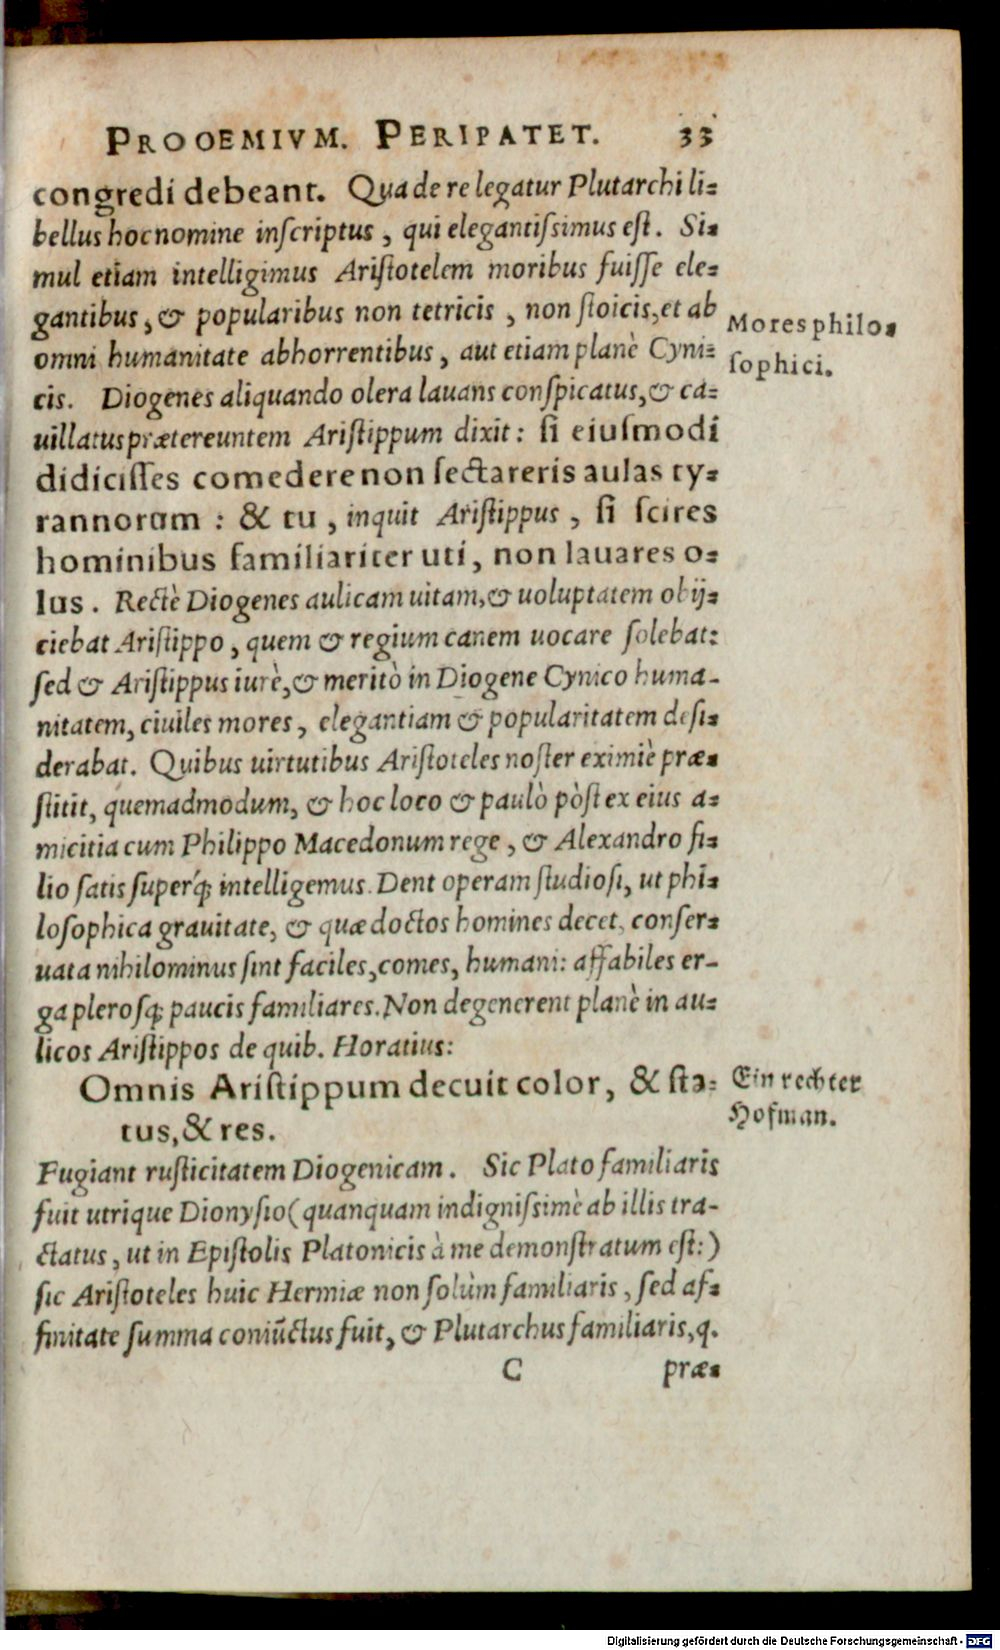 PROOEMIVM. PERIPATET. 33
congredi debeant. Qua de re legatur Plutarchi li=
bellus hoc nomine inſcriptus, qui elegantiſsimus eſt. Si=
mul etiam intelligimus Ariſtotelem moribus fuiſſe ele=
gantibus, & popularibus non tetricis, non ſtoicis, et ab
omni humanitate abhorrentibus, aut etiam planè Cyni=
cis. Diogenes aliquando olera lauans conſpicatus, & ca=
uillatus prætereuntem Ariſtippum dixit: ſi eiuſmodi
didiciſſes comedere non ſectareris aulas ty=
rannorum: & tu, inquit Ariſtippus, ſi ſcires
hominibus familiariter uti, non lauares o=
lus. Rectè Diogenes aulicam uitam, & uoluptatem obij=
ciebat Ariſtippo, quem & regium canem uocare ſolebat:
ſed & Ariſtippus iurè, & meritò in Diogene Cynico huma-
nitatem, ciuiles mores, elegantiam & popularitatem deſi=
derabat. Quibus uirtutibus Ariſtoteles noſter eximiè præ=
ſtitit, quemadmodum, & hoc loco & paulò pòſt ex eius a=
micitia cum Philippo Macedonum rege, & Alexandro fi=
lio ſatis ſuperq́ꝫ intelligemus. Dent operam ſtudioſi, ut phi=
loſophica grauitate, & quæ doctos homines decet, conſer=
uata nihilominus ſint faciles, comes, humani: affabiles er-
ga pleroſqꝫ paucis familiares. Non degenerent planè in au=
licos Ariſtippos de quib. Horatius:
Omnis Ariſtippum decuit color, & ſta=
tus, & res.
Fugiant ruſticitatem Diogenicam. Sic Plato familiaris
fuit utrique Dionyſio (quanquam indigniſsimè ab illis tra-
ctatus, ut in Epiſtolis Platonicis à me demonſtratum eſt:)
ſic Ariſtoteles huic Hermiæ non ſolùm familiaris, ſed af=
finitate ſumma coniũctus fuit, & Plutarchus familiaris, q.
C præ=
Mores philo=
ſophici.
Ein rechter
Hofman.
Digitalisierung gefördert durch die Deutsche Forschungsgemeinschaft - DFG